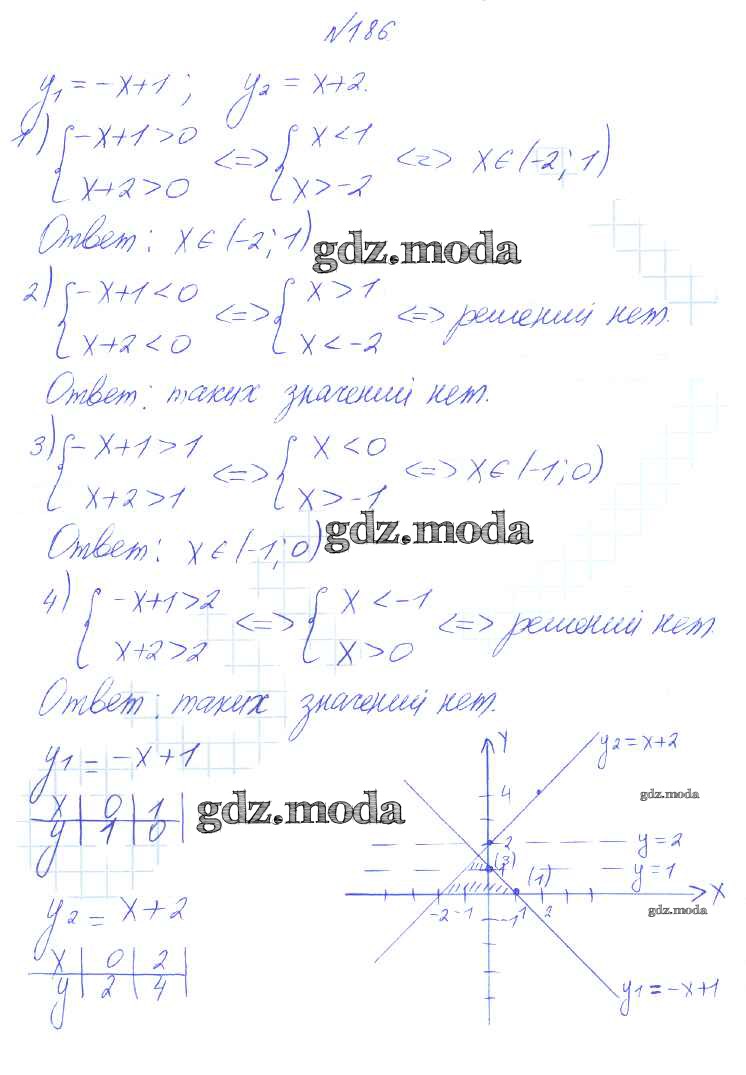 №186
y₁ = -x+1; y₂ = x+2.
1) { -x+1>0 <=> { x<1 <=> x∈(-2; 1)
x+2>0 x>-2
Ответ: x∈(-2; 1)
gdz.moda
2) { -x+1<0 <=> { x>1 <=> решений нет.
x+2<0 x<-2
Ответ: таких значений нет.
3) { -x+1>1 <=> { x<0 <=> x∈(-1; 0)
x+2>1 x>-1
gdz.moda
Ответ: x∈(-1; 0)
4) { -x+1>2 <=> { x<-1 <=> решений нет.
x+2>2 x>0
Ответ: таких значений нет.
y₁ = -x+1
x | 0 | 1 |
y | 1 | 0 |
gdz.moda
y₂ = x+2
x | 0 | 2 |
y | 2 | 4 |
y
y₂ = x+2
4
gdz.moda
2
y=2
(3)
1
y=1
(1)
x
-2 -1 1 2
-1
gdz.moda
y₁ = -x+1